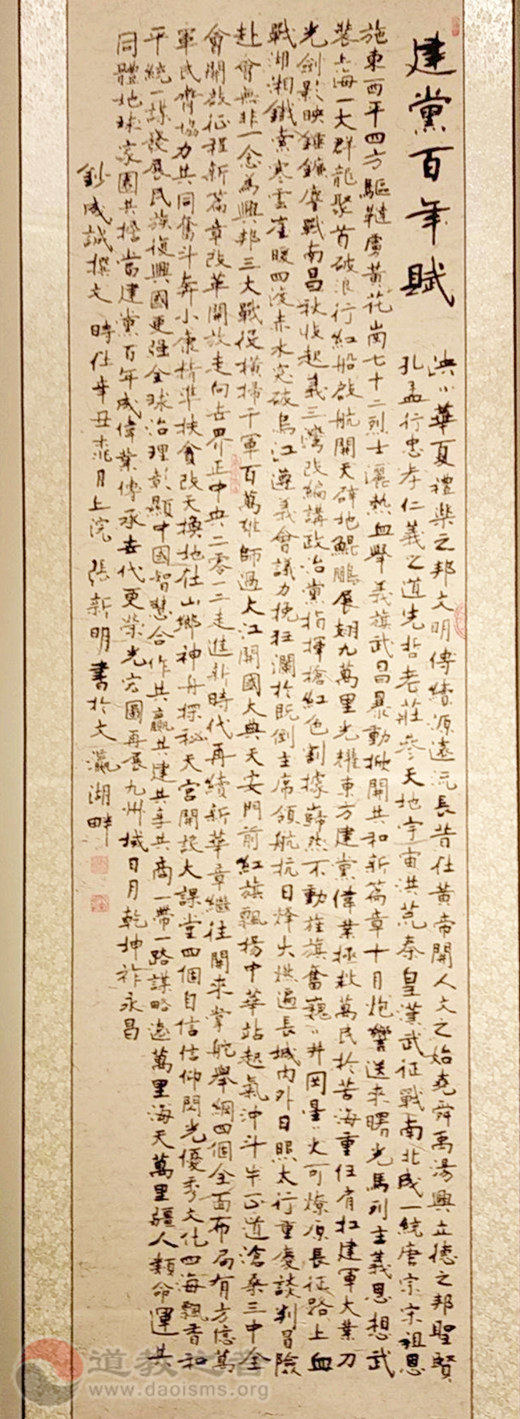 建黨百年賦
泱〻華夏禮樂之邦文明傳績源遠流長昔在黃帝開人文之始堯舜禹湯興立德之邦聖賢
孔孟行忠孝仁義之道先哲老莊參天地宇宙洪荒秦皇漢武征戰南北成一統唐宗宋祖恩
施東西平四方驅韃虜黃花崗七十二烈士灑熱血舉義旗武昌暴動掀開共和新篇章十月炮響送來曙光馬列主義思想武
裝上海一大群龍聚首破浪行紅船啟航開天辟地鯤鵬展翅九萬里光耀東方建黨偉業拯救萬民於苦海重任肩扛建軍大業刀
光劍影映錘鐮鏖戰南昌秋收起義三灣改編講政治黨指揮槍紅色割據巋然不動旌旗奮巍〻井岡星〻火可燎原長征路上血
戰湖湘鐵索寒雲崖暖四渡赤水突破烏江遵義會議力挽狂瀾於既倒主席領航抗日烽火烘遍長城內外日照太行重慶談判冒險
赴會無非一念為興邦三大戰役橫掃千軍百萬雄師過大江開國大典天安門前紅旗飄揚中華站起氣沖斗牛正道滄桑三中全
會開啟征程新篇章改革開放走向世界正中央二零一二走進新時代再續新華章繼往開來掌舵舉綱四個全面布局有方億萬
軍民齊協力共同奮斗奔小康精準扶貧改天換地在山鄉神舟探秘天宮開設大課堂四個自信信仰閃光優秀文化四海飄香和
平統一謀發展民族復興國更強全球治理彰顯中國智慧合作共贏共建共享共商一帶一路謀略遠萬里海天萬里疆人類命運共
同體地球家園共擔當建黨百年成偉業傳承世代更榮光宏圖再展九州域日月乾坤祚永昌
鈔成誠撰文 時在辛丑桃月上浣 張新明書於文瀛湖畔
道教之音
www.daoisms.org